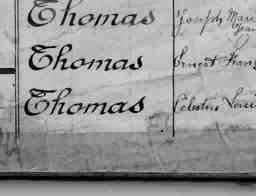 Thomas Joseph Marie
Jean
Thomas Ernest Fran
Thomas Célestin Loui